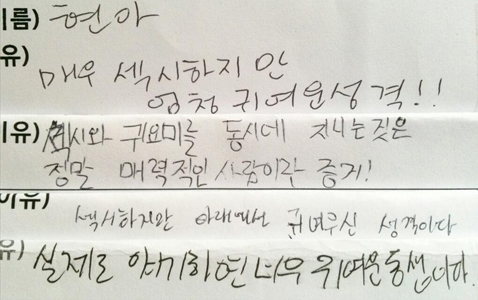 이름) 현아
유) 매우 섹시하지만
엄청 귀여운성격!!
이유) 섹시와 귀요미를 동시에 지니는것은
정말 매력적인 사람이란 증거!
이유) 섹시하지만 아래에선 귀여우신 성격이다
유) 실제로 얘기하면 너무 귀여운동생이다.